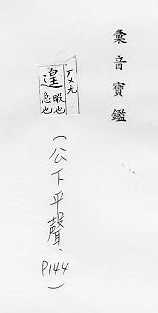 彙音寶鑑
ㄏㄨㄤ
遑
暇也
急也
(公下平聲、P144)